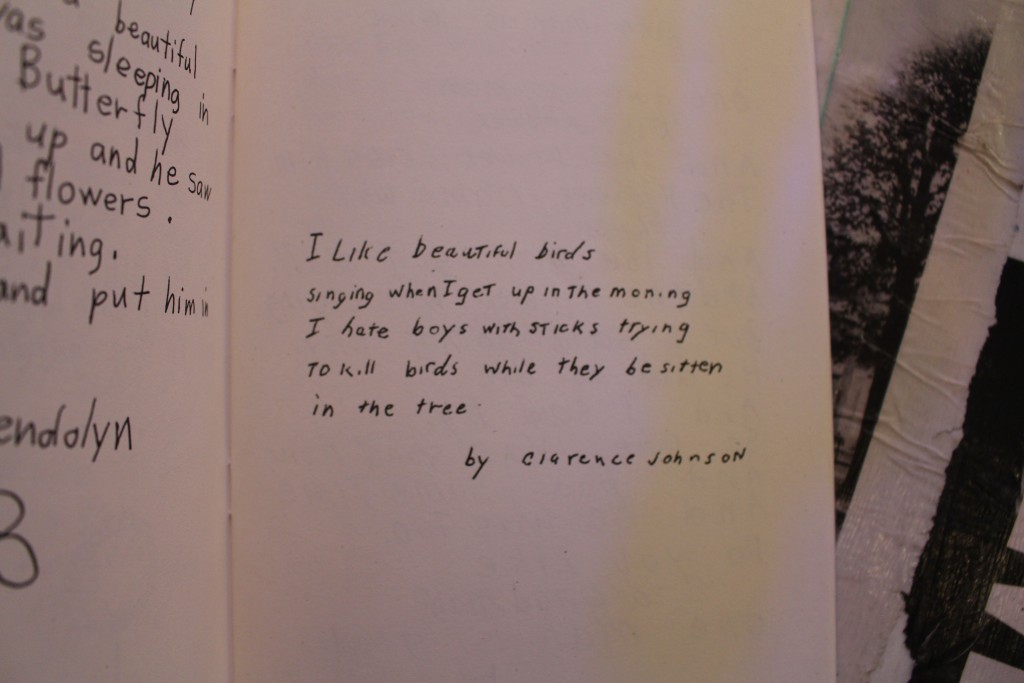 beautiful
was sleeping in
Butterfly
up and he saw
flowers.
aiting.
and put him in
endolyn
I Like beautiful birds
singing when I get up in the moning
I hate boys with sticks trying
To kill birds while they be sitten
in the tree.
by clarence Johnson